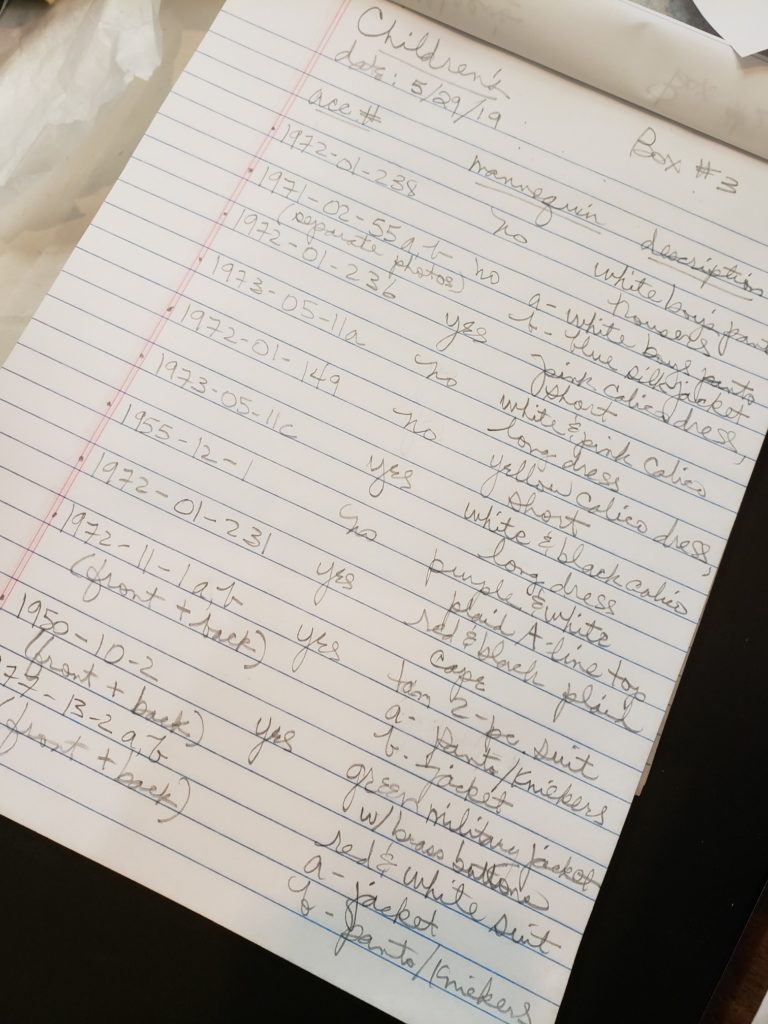 Children's
date: 5/29/19 Box #3
acc # mannequin description
1972-01-238 no white boy's pants
trousers
1971-02-55a,b no a- white boys pants
(separate photos) b- blue silk jacket
1972-01-236 yes pink calico dress,
short
1973-05-11a no white & pink calico
long dress
1972-01-149 no yellow calico dress,
short
1973-05-11c yes white & black calico
long dress
1955-12-1 no purple & white
plaid A-line top
1972-01-231 yes red & black plaid
cape
1972-11-1a,b yes tan 2-pc. suit
(front + back) a- pants/Kniekers
b- jacket
1950-10-2 yes green military jacket
(front + back) w/ brass buttons
77-13-2a,b red & white suit
(front + back) a- jacket
b- pants/Kniekers